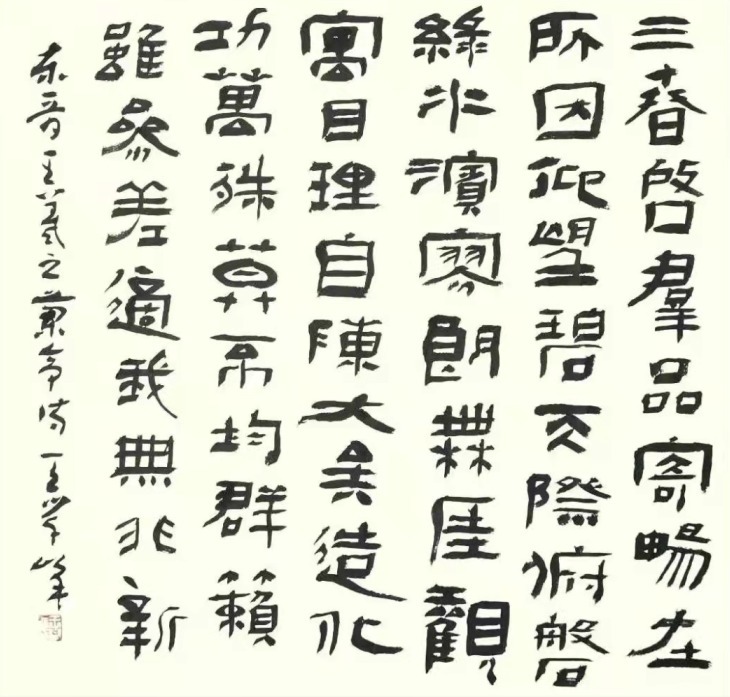 三春啓羣品寄暢在
所因仰望碧天際俯磐
綠水濱寥朗無厓觀
寓目理自陳大矣造化
功萬殊莫不均群籟
雖參差適我無非新
東晉王羲之蘭亭詩 王学